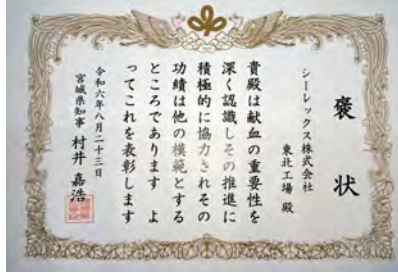 褒状
シーレックス株式会社
東北工場 殿
貴殿は献血の重要性を
深く認識しその推進に
積極的に協力されその
功績は他の模範とする
ところであります よ
ってこれを表彰します
令和六年八月二十三日
宮城県知事 村井 嘉浩